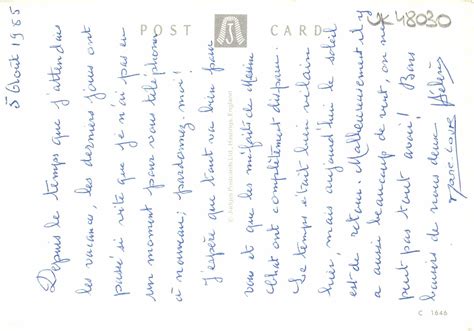 POST CARD
CK 48030
5 Août 1985
Depuis le temps que j'attendais
les vacances, les derniers jours ont
passé si vite que je n'ai pas eu
un moment pour vous téléphoner
à nouveau; pardonnez-moi!
J'espère que tout va bien pour
vous et que les méfaits de
Chat ont complètement disparu.
Le temps était bien vilain
hier, mais aujourd'hui le soleil
est de retour. Malheureusement il y
a aussi beaucoup de vent, on ne
peut pas tout avoir! Bons
baisers de nous deux. Hélène
© Judges Postcards Ltd., Hastings, England
C 1646